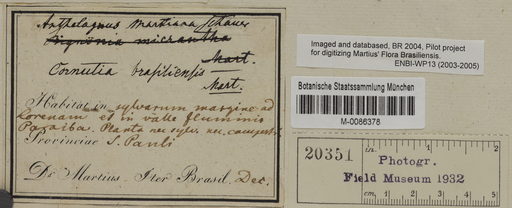 Martiana Schauer
Bignonia micrantha
Mart.
Cornutia brasiliensis
Mart.
Habitat in sylvarum margine ad
Lorenam et in valle fluminis
Paraiba. Planta
Provinciae S. Pauli
Dr. Martius. Iter Brasil. Dec.
Imaged and databased, BR 2004, Pilot project
for digitizing Martius' Flora Brasiliensis.
ENBI-WP13 (2003-2005)
Botanische Staatssammlung München
M-0086378
20351
in. 1 2
Photogr.
Field Museum 1932
cm. 1 2 3 4 5